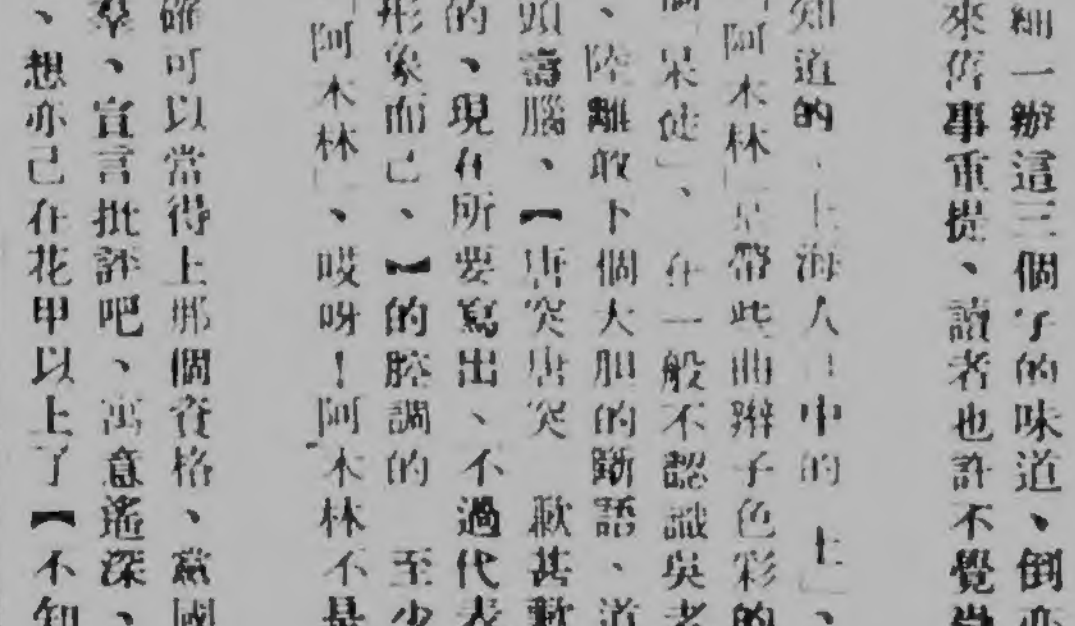 細一辦這三個字的味道、倒亦
來舊事重提、讀者也許不覺
知道的、上海人口中的「土」、
「阿木林」是帶些曲辮子色彩的
呆徒」、在一般不認識吳老
、陸離敢下個大胆的斷語、道
頭壽腦、【唐突唐突 歉甚歉
的、現在所要寫出、不過代表
形象而已、】的腔調的 至少
「阿木林」、哎呀！阿木林不是
確可以當得上那個資格、黨國
羣、宣言批評吧、寓意遙深、
、想亦已在花甲以上了【不知